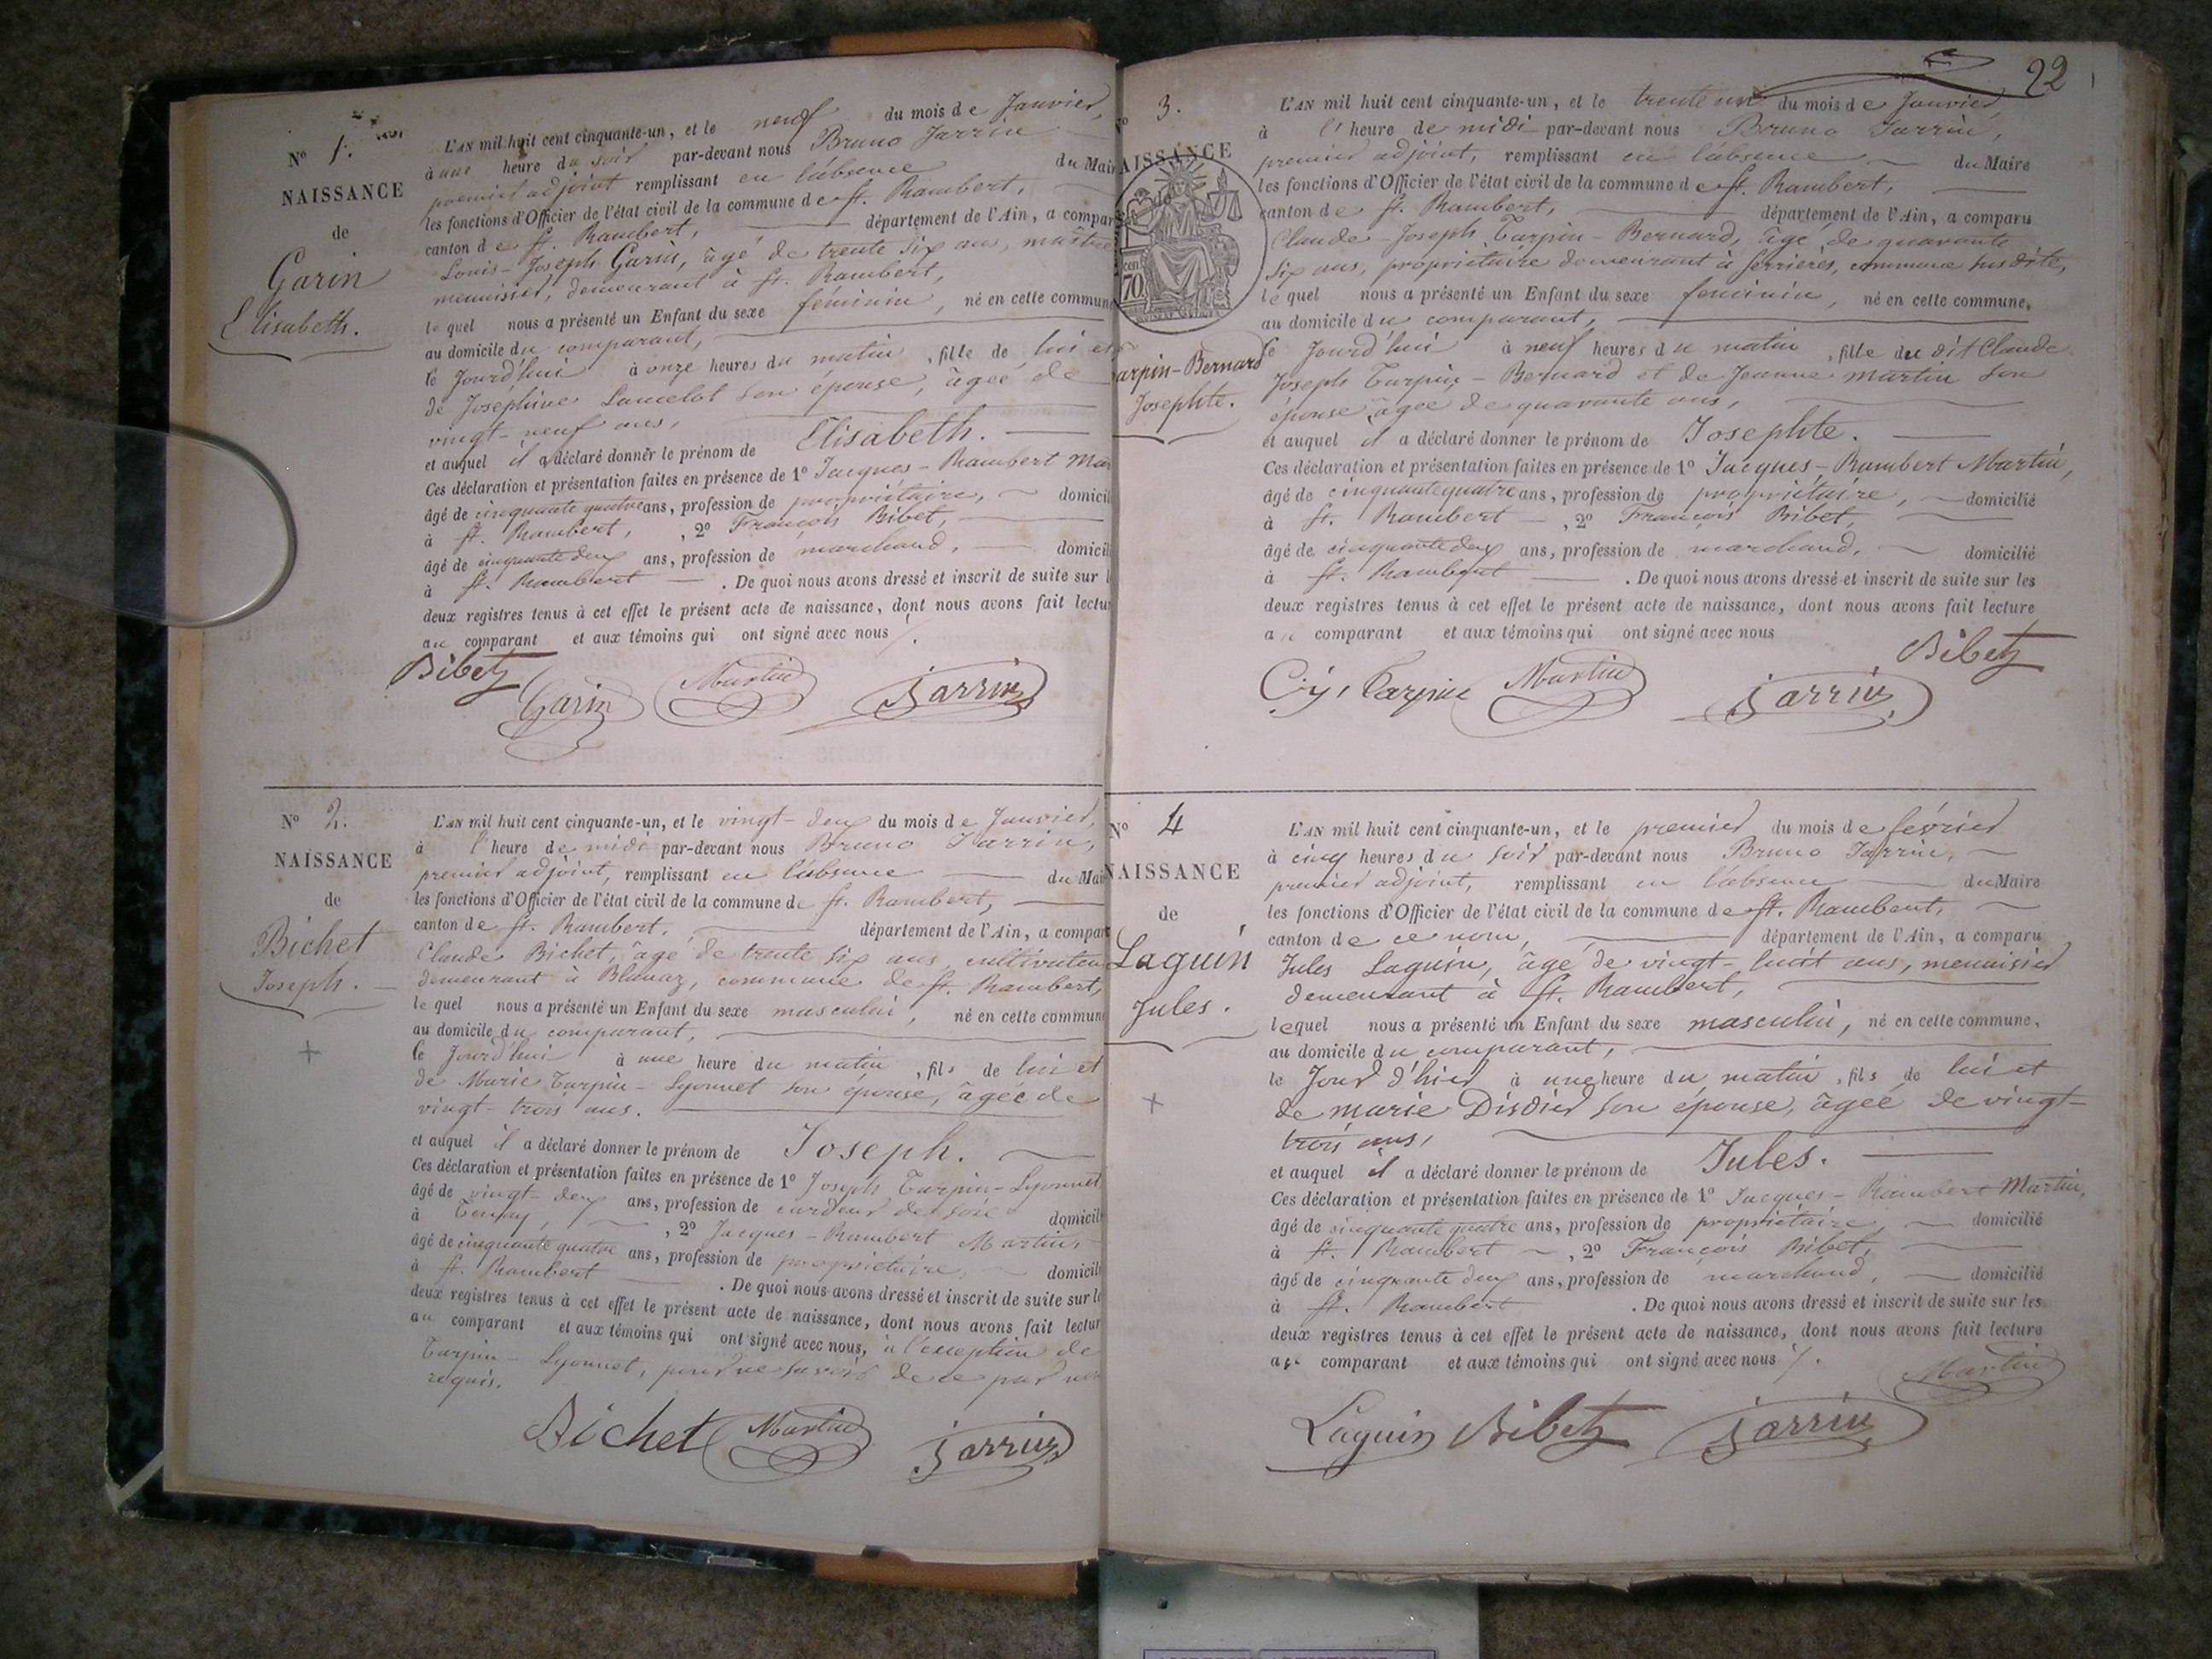 Nº 1.
NAISSANCE
de
Garin
Elisabeth.
L'AN mil huit cent cinquante-un, et le neuf du mois de Janvier,
à une heure du soir par-devant nous Bruno Jarrin
premier adjoint remplissant en l'absence du Mair
les fonctions d'Officier de l'état civil de la commune de St. Rambert,
canton de St. Rambert, département de l'Ain, a compar
Louis-Joseph Garin, âgé de trente six ans, maître
menuisier, demeurant à St. Rambert,
lequel nous a présenté un Enfant du sexe féminin, né en cette commun
au domicile du comparant,
le Jourd'hui à onze heures du matin, fille de lui et
de Josephine Lancelot son épouse, âgée de
vingt-neuf ans,
et auquel il a déclaré donner le prénom de Elisabeth.
Ces déclaration et présentation faites en présence de 1º Jacques-Rambert Mar
âgé de cinquante quatre ans, profession de propriétaire, domicil
à St. Rambert, , 2º François Bibet,
âgé de cinquante deux ans, profession de marchand, domicil
à St. Rambert . De quoi nous avons dressé et inscrit de suite sur l
deux registres tenus à cet effet le présent acte de naissance, dont nous avons fait lectur
au comparant et aux témoins qui ont signé avec nous /.
Bibet Garin Martin Jarrin
Nº 2.
NAISSANCE
de
Bichet
Joseph.
+
L'AN mil huit cent cinquante-un, et le vingt-deux du mois de Janvier,
à l'heure de midi par-devant nous Bruno Jarrin,
premier adjoint, remplissant en l'absence du Mai
les fonctions d'Officier de l'état civil de la commune de St. Rambert,
canton de St. Rambert, département de l'Ain, a compar
Claude Bichet, âgé de trente six ans cultivateu
demeurant à Blanaz, commune de St. Rambert,
lequel nous a présenté un Enfant du sexe masculin, né en cette commun
au domicile du comparant,
le Jourd'hui à une heure du matin, fils de lui et
de Marie Turpin-Lyonnet son épouse, âgée de
vingt-trois ans.
et auquel il a déclaré donner le prénom de Joseph.
Ces déclaration et présentation faites en présence de 1º Joseph Turpin-Lyonnet
âgé de vingt-deux ans, profession de cardeur de soie domicil
à Tenay, , 2º Jacques-Rambert Martin,
âgé de cinquante quatre ans, profession de propriétaire, domicil
à St. Rambert . De quoi nous avons dressé et inscrit de suite sur le
deux registres tenus à cet effet le présent acte de naissance, dont nous avons fait lectur
au comparant et aux témoins qui ont signé avec nous, à l'exception de
Turpin-Lyonnet, pour ne savoir de ce par
requis.
Bichet Martin Jarrin
22
º 3.
AISSANCE
de
cen
70
urpin-Bernard
Josephte.
L'AN mil huit cent cinquante-un, et le trente un du mois de Janvier
à l'heure de midi par-devant nous Bruno Jarrin,
premier adjoint, remplissant en l'absence du Maire
les fonctions d'Officier de l'état civil de la commune de St. Rambert,
canton de St. Rambert, département de l'Ain, a comparu
Claude-Joseph Turpin-Bernard, âgé de quarante
six ans, propriétaire demeurant à Serrieres, commune susdite,
lequel nous a présenté un Enfant du sexe feminin, né en cette commune,
au domicile du comparant,
le Jourd'hui à neuf heures du matin, fille du dit Claude
Joseph Turpin-Bernard et de Jeanne Martin son
épouse âgée de quarante ans,
et auquel il a déclaré donner le prénom de Josephte.
Ces déclaration et présentation faites en présence de 1º Jacques-Rambert Martin,
âgé de cinquante quatre ans, profession de propriétaire, domicilié
à St. Rambert , 2º François Bibet,
âgé de cinquante deux ans, profession de marchand, domicilié
à St. Rambert . De quoi nous avons dressé et inscrit de suite sur les
deux registres tenus à cet effet le présent acte de naissance, dont nous avons fait lecture
au comparant et aux témoins qui ont signé avec nous
Bibet
C. j. Turpin Martin Jarrin
Nº 4
NAISSANCE
de
Laguin
Jules.
+
L'AN mil huit cent cinquante-un, et le premier du mois de février
à cinq heures du soir par-devant nous Bruno Jarrin,
premier adjoint, remplissant en l'absence du Maire
les fonctions d'Officier de l'état civil de la commune de St. Rambert,
canton de ce nom, département de l'Ain, a comparu
Jules Laguin, âgé de vingt-huit ans, menuisier
demeurant à St. Rambert,
lequel nous a présenté un Enfant du sexe masculin, né en cette commune,
au domicile du comparant,
le Jour d'hier à une heure du matin, fils de lui et
de Marie Disdier son épouse, âgée de vingt-
trois ans,
et auquel il a déclaré donner le prénom de Jules.
Ces déclaration et présentation faites en présence de 1º Jacques-Rambert Martin,
âgé de cinquante quatre ans, profession de propriétaire, domicilié
à St. Rambert , 2º François Bibet,
âgé de cinquante deux ans, profession de marchand, domicilié
à St. Rambert . De quoi nous avons dressé et inscrit de suite sur les
deux registres tenus à cet effet le présent acte de naissance, dont nous avons fait lecture
au comparant et aux témoins qui ont signé avec nous /.
Martin
Laguin Bibet Jarrin